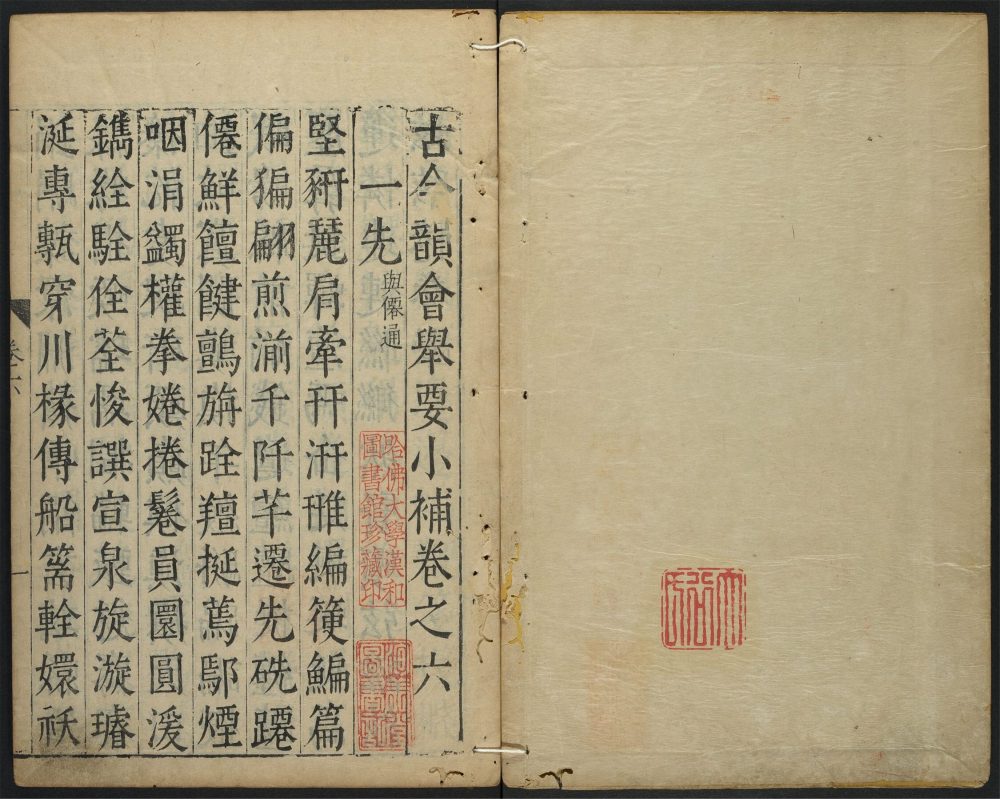 古今韻會舉要小補卷之六
一先與僊通
哈佛大學漢和
圖書館珍藏印
堅豣麗肩牽幵汧雃編箯鯿篇
偏猵翩煎湔千阡芊遷先硂躚
僊鮮饘餰鸇旃跧羶挻蔫鄢煙
咽涓蠲權拳婘捲鬈員圜圓湲
鐫絟駩佺荃悛譔宣泉旋漩璿
涎專甎穿川椽傳船篅輇嬛祆
卷六
一